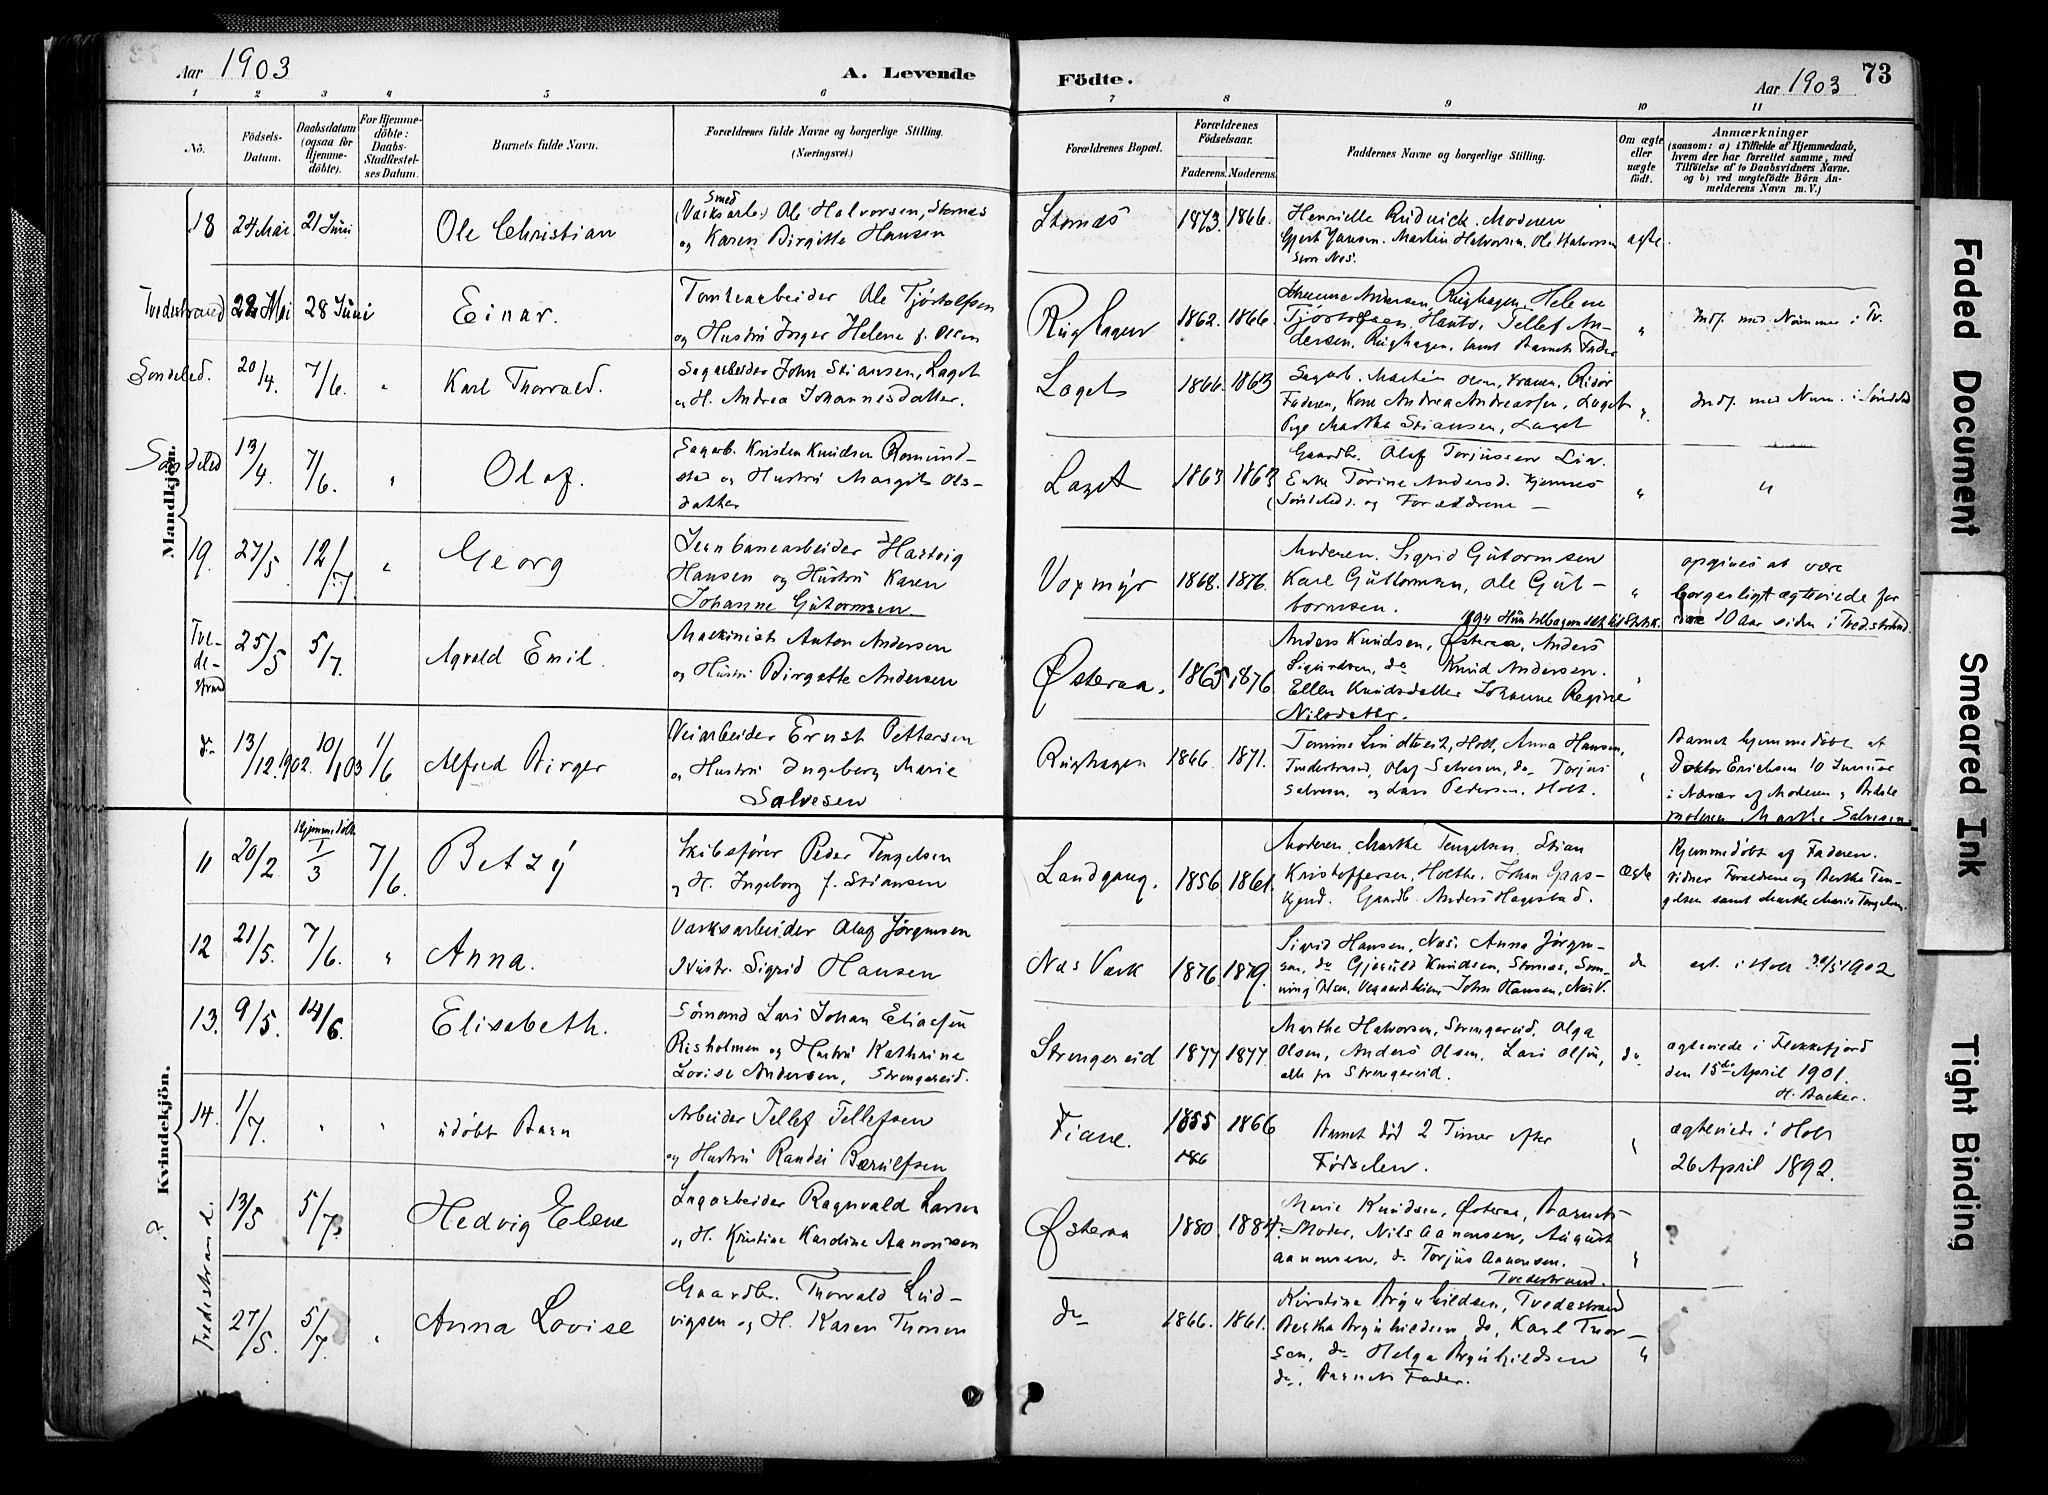 Aar 1903
A. Levende
Födte.
Aar 1903
73
1 2 3 4 5 6 7 8 9 10 11
Nö.
Födsels-Datum.
Daabsdatum (ogsaa for Hjemmedöbte).
For Hjemmedöbte: Daabs-Stadfestelses Datum.
Barnets fulde Navn.
Forældrenes fulde Navne og borgerlige Stilling.
(Næringsvei.)
Forældrenes Bopæl.
Forældrenes Födselsaar.
Faderens. Moderens.
Faddernes Navne og borgerlige Stilling.
Om ægte eller uægte födt.
Anmærkninger
(saasom: a) i Tilfælde af Hjemmedaab,
hvem der har forrettet samme, med
Tilföielse af to Daabsvidners Navne.
og b) ved uægtefödte Börn An-
melderens Navn m. V.)
Mandkjøn.
18 24 Mai 21 Juni Ole Christian
Smed
(Værksarb.) Ole Halvorsen, Stornæs
og Karen Birgitte Hansen
Stornæs 1873. 1866.
Moderen
Gjert Jansen. Martin Halvorsen, Ole Halvorsen
Stor Nes.
ægte.
Tvedestrand 28 Mai 28 Juni Einar.
Tomtearbeider Ole Tjöstolfsen
og Hustru Inger Helene f. Olsen
Rüghagen 1862. 1866.
Andersen Rüghagen, Helene
Tjöstolfsen, Hanto, Tellef An-
dersen, Rüghagen, samt Barnets Fader
"
Indf. med Nummer i Tv.
Söndeled. 20/4. 7/6. " Karl Thorvald.
Sagarbeider John Stiansen, Laget
og H. Andrea Johannesdatter.
Laget 1866. 1863
Sagarb. Martin Olsen, Risör
Faderen, Kone Andrea Andreassen, Laget
Pige Martha Stiansen, Laget
"
Indf. med Num. i Söndeled
Söndeled 13/4. 7/6. " Olaf.
Sagarb. Kristen Knudsen Romund-
stad og Hustru Margit Ols-
datter
Laget 1863 1863
Gaardbr. Olaf Torjussen Lia.
Enke Torine Andersd. Hjemnes
(Söndeled). og Forældrene —
"
"
19. 27/5 12/7. " Georg
Jernbanearbeider Hartvig
Hansen og Hustru Karen
Johanne Gutormsen
Voxmyr 1868. 1876.
Moderen. Sigrid Gutormsen
Karl Guttormsen, Ole Gut-
tormsen.
"
opgives at være
borgerligt ægteviede for
10 aar siden i Tvedestrand.
Tve-
de-
strand
25/5 5/7. Agvald Emil.
Maskinist Anton Andersen
og Hustru Birgitte Andersen
Østeraa. 1865 1876.
Anders Knudsen, Østeraa, Anders
Sigurdsen, do Knud Andersen.
Ellen Knudsdatter Johanne Regine
Nilsdatter.
"
do 13/12.1902. 10/1 03 1/6 Alfred Birger
Veiarbeider Ernst Pettersen
og Hustru Ingeborg Marie
Salvesen
Rüghagen 1866. 1871.
Tomine Lindtveit, Holt, Anna Hansen,
Tvedestrand, Olaf Salvesen, do, Torjus
Salvesen, og Lars Pedersen, Holt.
"
Barnet hjemmedöbt af
Doktor Erichsen 10 Januar
i Nærvær af Moderen og Bedste
moderen Marthe Salvesen
Kvindekjön.
11 20/2 Hjemmedöbt 1/3 7/6. Betzy
Skibsförer Peder Tengelsen
og H. Ingeborg f. Stiansen
Landgang. 1856 1861.
Moderen, Marthe Tengelsen, Stian
Kristoffersen, Holthe. Johan Gaas-
kjend. Gaardb. Anders Hagestad.
Ægte
Hjemmedöbt af Faderen.
Vidner Forældrene og Berthe Ten-
gelsen samt Marthe Marie Tengelsen.
12 21/5. 7/6. " Anna.
Værksarbeider Olaf Jörgensen
Hustr. Sigrid Hansen
Næs Værk 1876 1879.
Sigrid Hansen, Næs. Anna Jörgen-
sen, do Gjerulf Knudsen, Stornæs, Søn-
ning Olsen, Vegaardsheien, John Hansen, Næs V.
do
egt. i Holt 30/5 1902
13. 9/5. 14/6. Elisabeth.
Sömand Lars Johan Eliasen
Risholmen og Hustru Kathrine
Lovise Andersen, Strengereid.
Strengereid 1877 1877.
Marthe Halvorsen, Strengereid, Olga
Olsen, Anders Olsen, Lars Olsen,
alle fra Strengereid.
do.
ægteviede i Flekkefjord
den 15de April 1901.
H. Aaker.
14. 1/7. " " udöbt Barn
Arbeider Tellef Tellefsen
og Hustru Randei Bærulfsen
Fiane. 1855 1866
186
Barnet död 2 Timer efter
Födselen.
"
ægteviede i Holt
26 April 1892.
?
Tvedestrand.
13/5 5/7 Hedvig Elene
Sagarbeider Ragnvald Larsen
og H. Kristine Kardine Aanonsen
Østeraa 1880. 1884.
Marie Knudsen, Østeraa, Barnets
Moder, Nils Aanonsen, August
Aanonsen, do. Torjus Aanonsen.
Tvedestrand.
"
27/5. 5/7. " Anna Lovise
Gaardbr. Thorvald Lud-
vigsen og H. Karen Thorsen
do 1866. 1861.
Kirstine Aryuhildsen, Tvedestrand
Bertha Aryuhildsen do, Karl Thor-
sen, do Helga Aryuhildsen
do, Barnets Fader.
"
Faded Document
Smeared Ink
Tight Binding